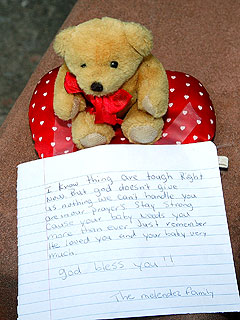 I know thing are tough Right
Now. But god doesn't give
us nothing we cant handle you
are in our prayers. Stay strong
cause your baby needs you
more than ever. Just remember
He loved you and your baby very
much.
god bless you!!
The melendez family